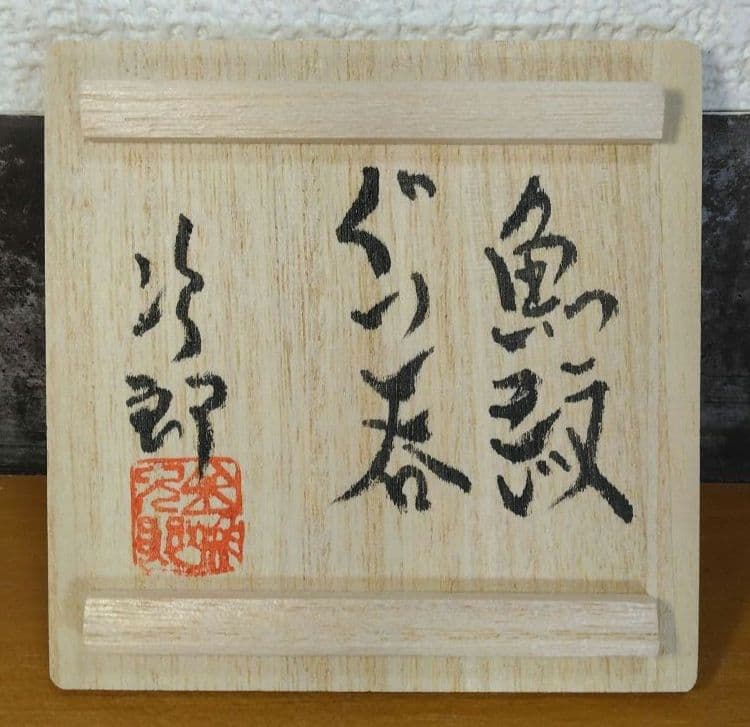 魚紋
ぐい呑
次郎